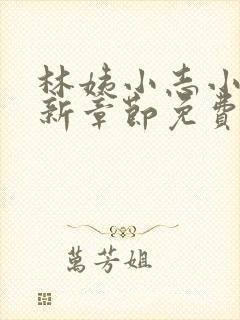 林姨小志小
新章節免費
萬芳姐